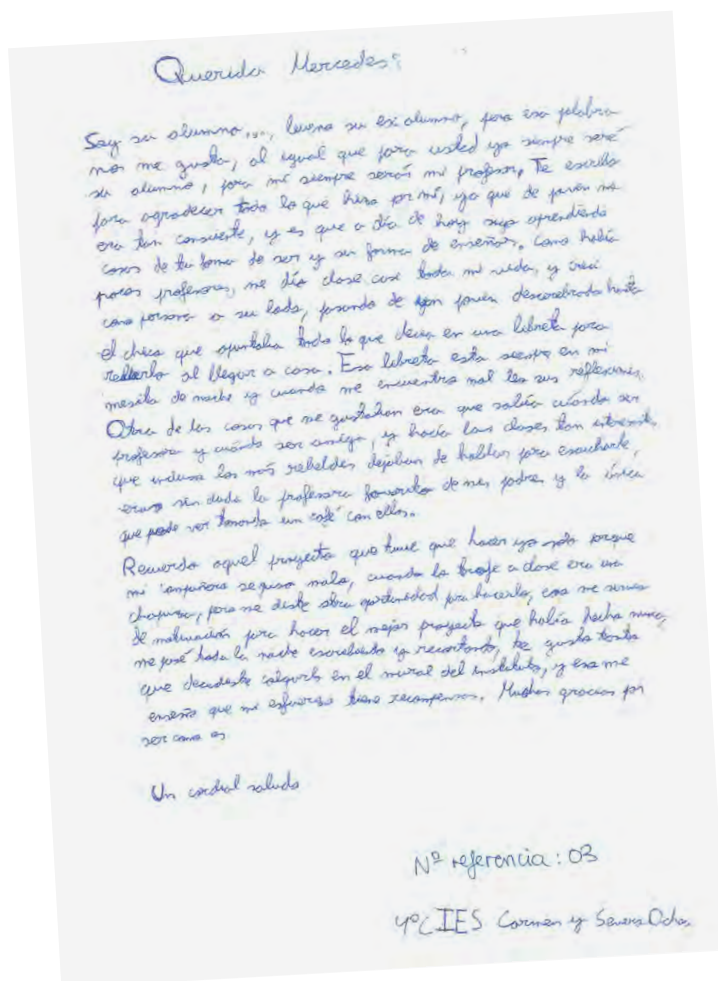 Querida Mercedes:
Soy su alumno...., bueno su ex alumno, pero esa palabra
nos me gusta, al igual que para usted yo siempre seré
su alumno, para mí siempre serás mi profesor. Te escribo
para agradecer todo lo que hizo por mí, ya que de joven no
era tan consciente, y es que a día de hoy sigo aprendiendo
cosas de tu forma de ser y su forma de enseñar. Como había
pocos profesores, me dío clase casi toda mi vida, y crecí
como persona a su lado, pasando de un joven descerebrado hasta
el chico que apuntaba todo lo que decía en una libreta para
releerlo al llegar a casa. Esa libreta esta siempre en mi
mesita de noche y cuando me encuentro mal leo sus reflexiones.
Otra de las cosas que me gustaban era que sabía cuándo ser
profesora y cuándo ser amiga, y hacía las clases tan
que incluso los más rebeldes dejaban de hablar para escucharte,
eras sin duda la profesora favorita de mis padres y la única
que pude ver tomando un café con ellos.
Recuerdo aquel proyecto que tuve que hacer yo solo porque
mi compañera se puso mala, cuando lo traje a clase era una
chapuza, pero me diste otra oportunidad para hacerlo, eso me
de motivación para hacer el mejor proyecto que había hecho nunca,
me pasé toda la noche escribiendo y recortando, te gusto tanto
que decidiste colgarlo en el mural del instituto, y eso me
enseño que mi esfuerzo tiene recompensas. Muchas gracias por
ser como es
Un cordial saludo
Nº referencia: 03
4ºC IES Carmen y Severo Ochoa